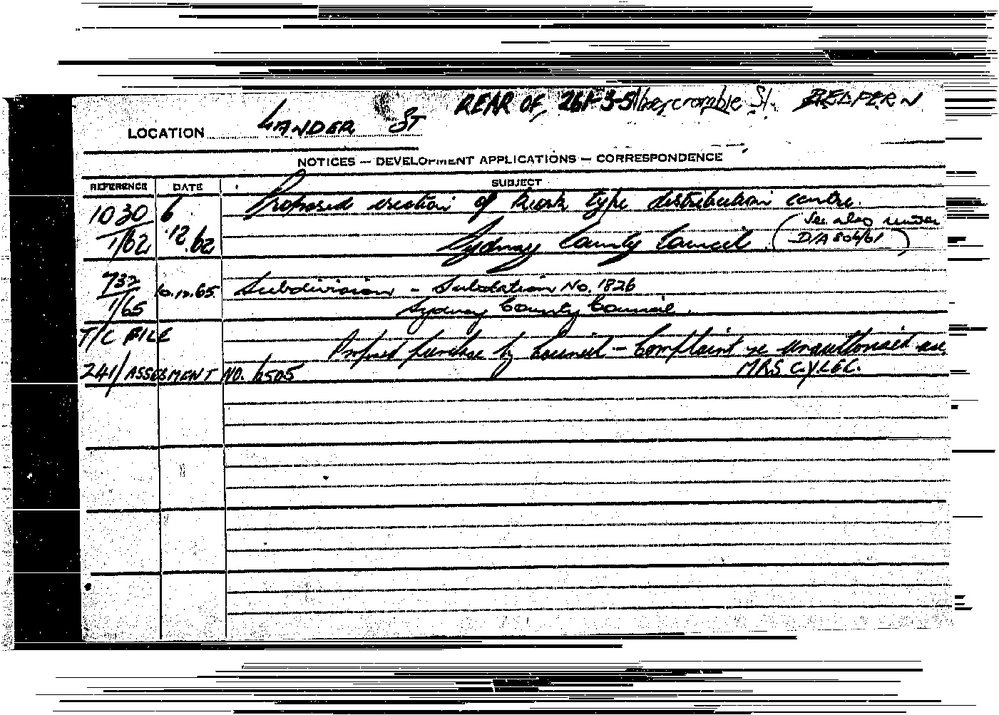 REAR OF 261-3-5 Abercrombie St. REDFERN
LOCATION LANDER ST
NOTICES — DEVELOPMENT APPLICATIONS — CORRESPONDENCE
REFERENCE DATE SUBJECT
1030 6 Proposed erection of kiosk type distribution centre.
1/62 .12.62 Sydney County Council. (See also under
D/A 804/61)
732 10.12.65 Subdivision - Substation No. 1826
1/65 Sydney County Council.
T/C FILE
Proposed purchase by Council - Complaint re unauthorised use
241/ ASSESSMENT NO. 6505 MRS